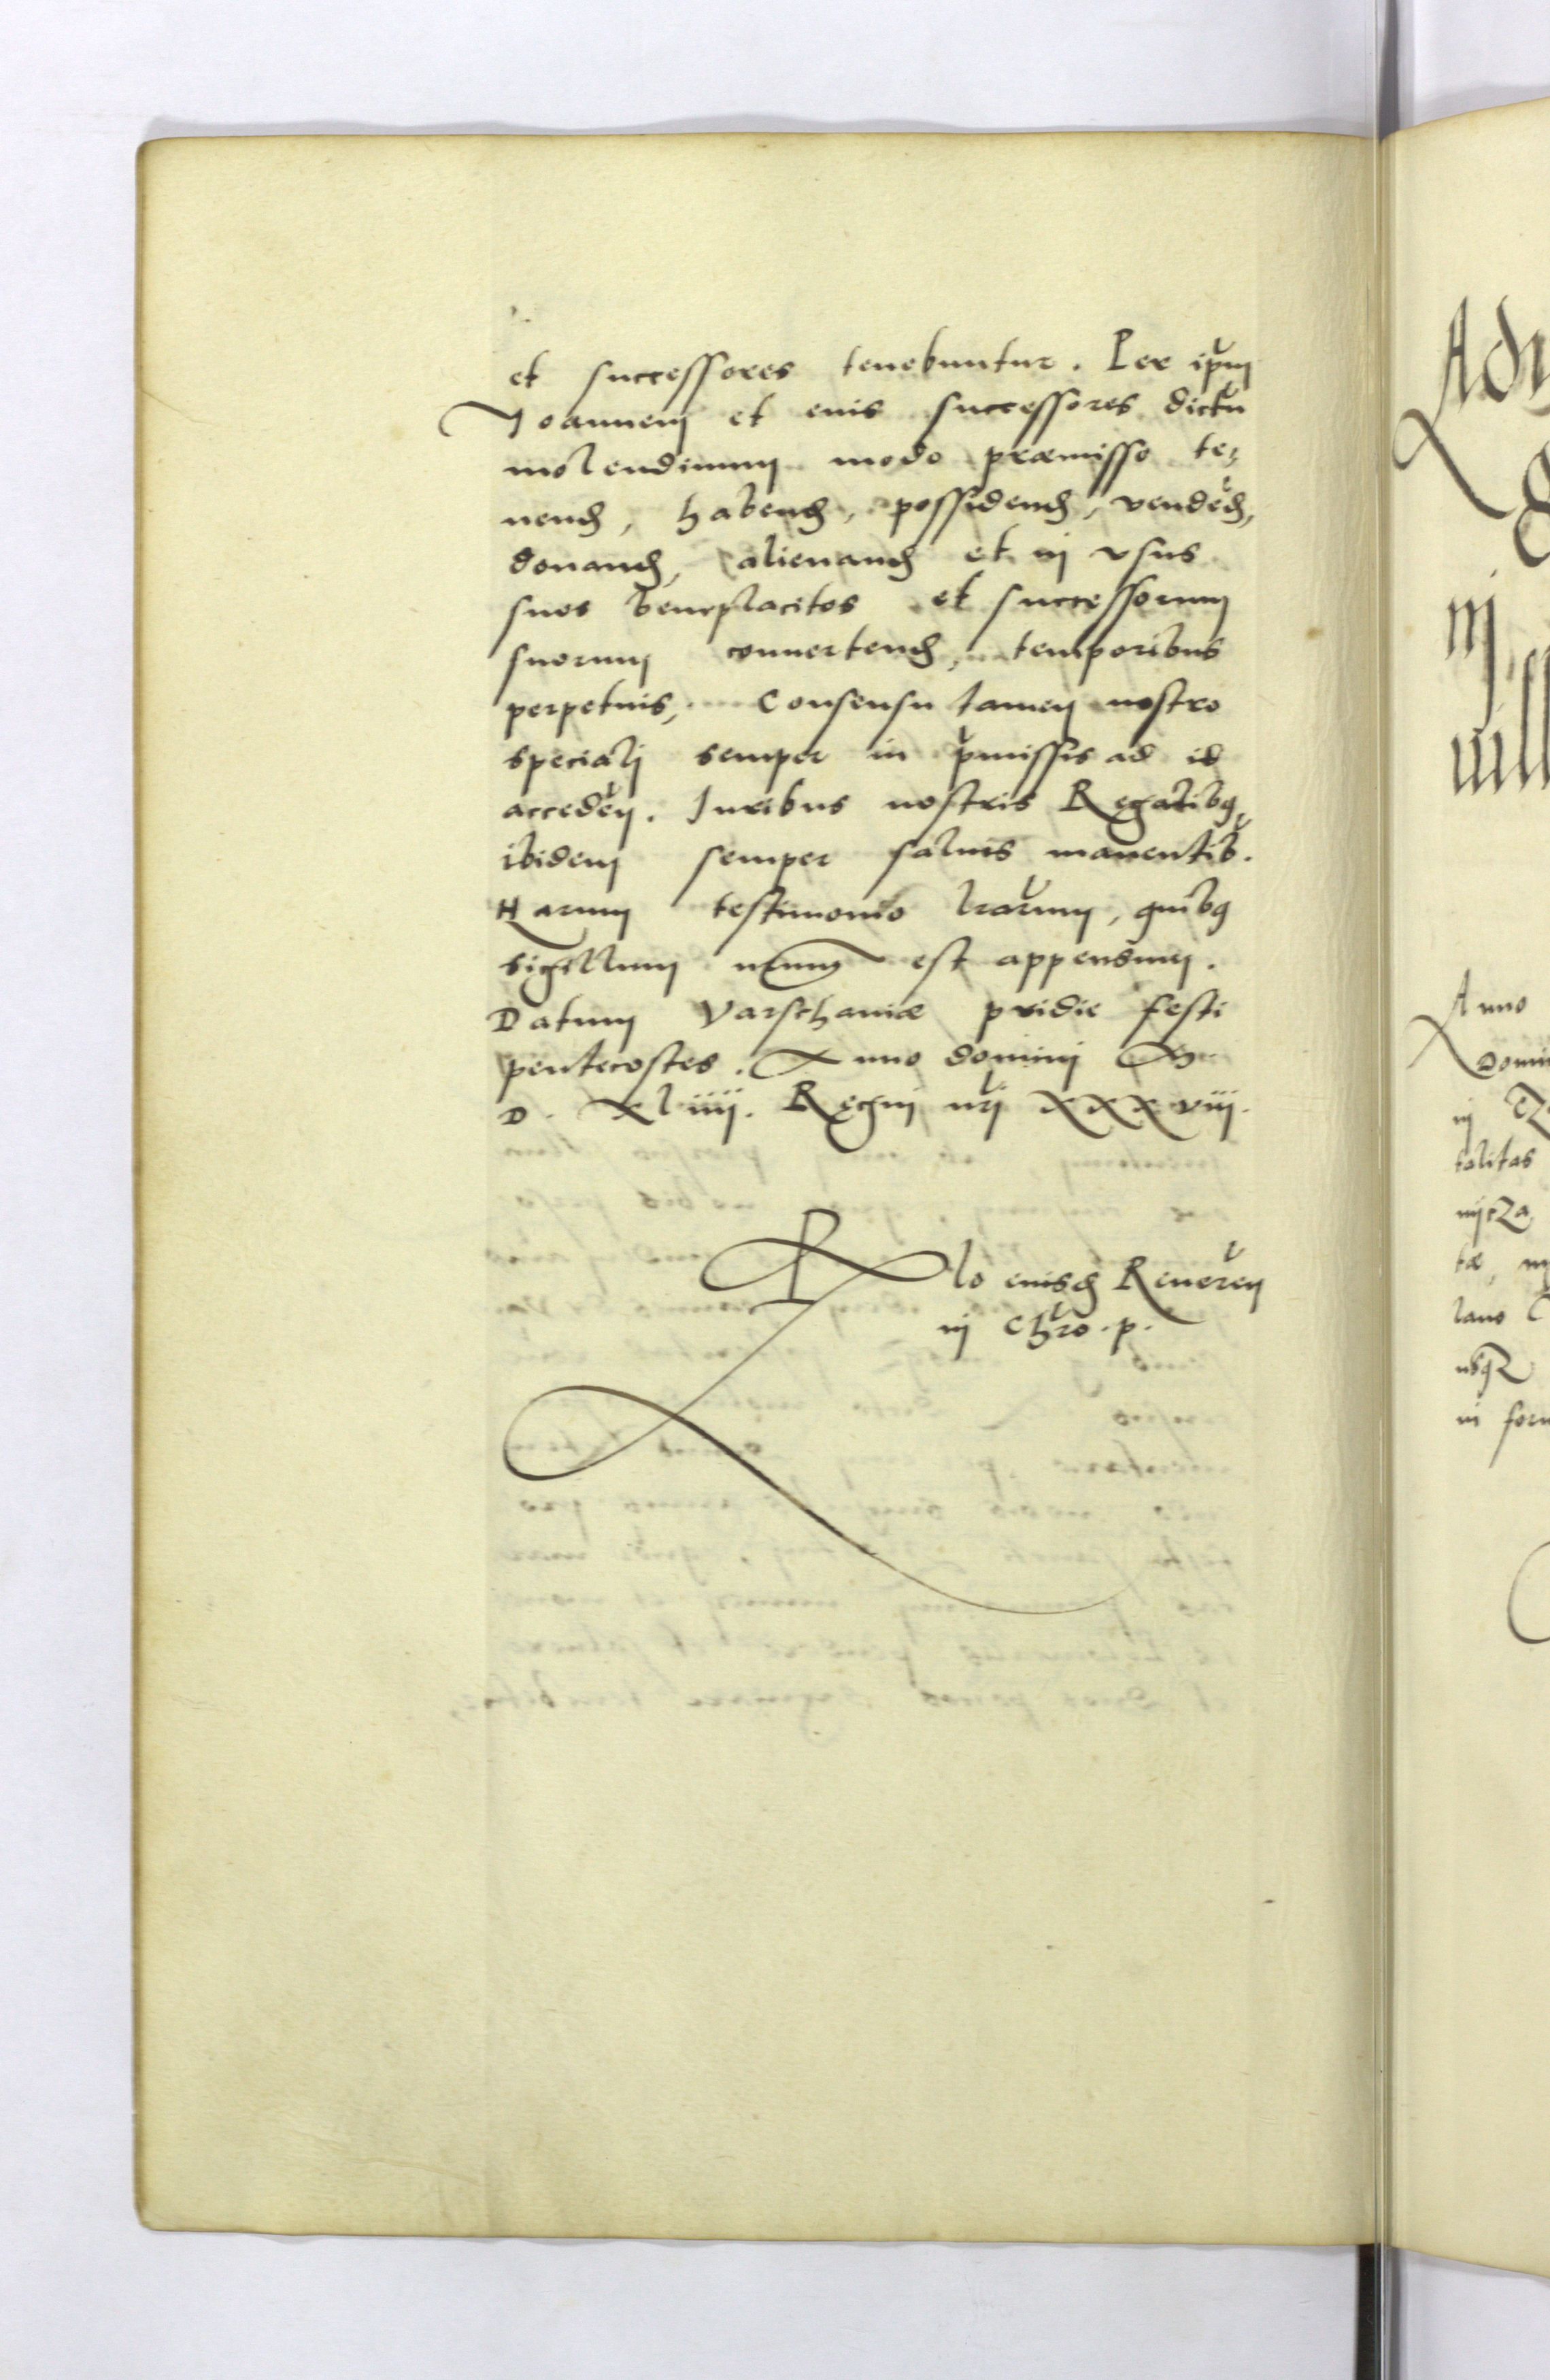 et successores tenebuntur. Per ip̃m
Joannem et eius successores dictũ
molendinum modo præmisso te⸗
nend, habend, possidend, vendẽd,
donand, alienand et in vsus
suos beneplacitos et successorum
suorum conuertend, temporibus
perpetuis, Consensu tamen nostro
speciali semper in p̃missis ad id
accedẽn. Juribus nostris Regalibq
ibidem semper saluis manentib̃.
Harum testimonio lrãrum, quibq
sigillum nrum est appensum.
Datum Varschauiæ pridie festi
pentecostes. Anno domini M.
D. XLiiij. Regni nr̃j XXXviij.
Rlo eiusd Reuerẽn
in Chrõ. p.
Anno
in
talitas
lano
in form